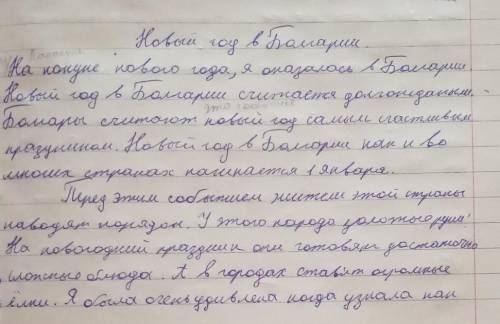 Новый год в Болгарии.
На кануне нового года, я оказалась в Болгарии.
Новый год в Болгарии считается долгожданым.
это событие
Болгары считают новый год самым счастливым
праздником. Новый год в Болгарии как и во
многих странах начинается 1 Января.
Перед этим событием жители этой страны
наводят порядок. У этого народа золотые руки!
На новогодний праздник они готовят достаточно
сложные блюда. А в городах ставят огромные
ёлки. Я была очень удивлена когда узнала как